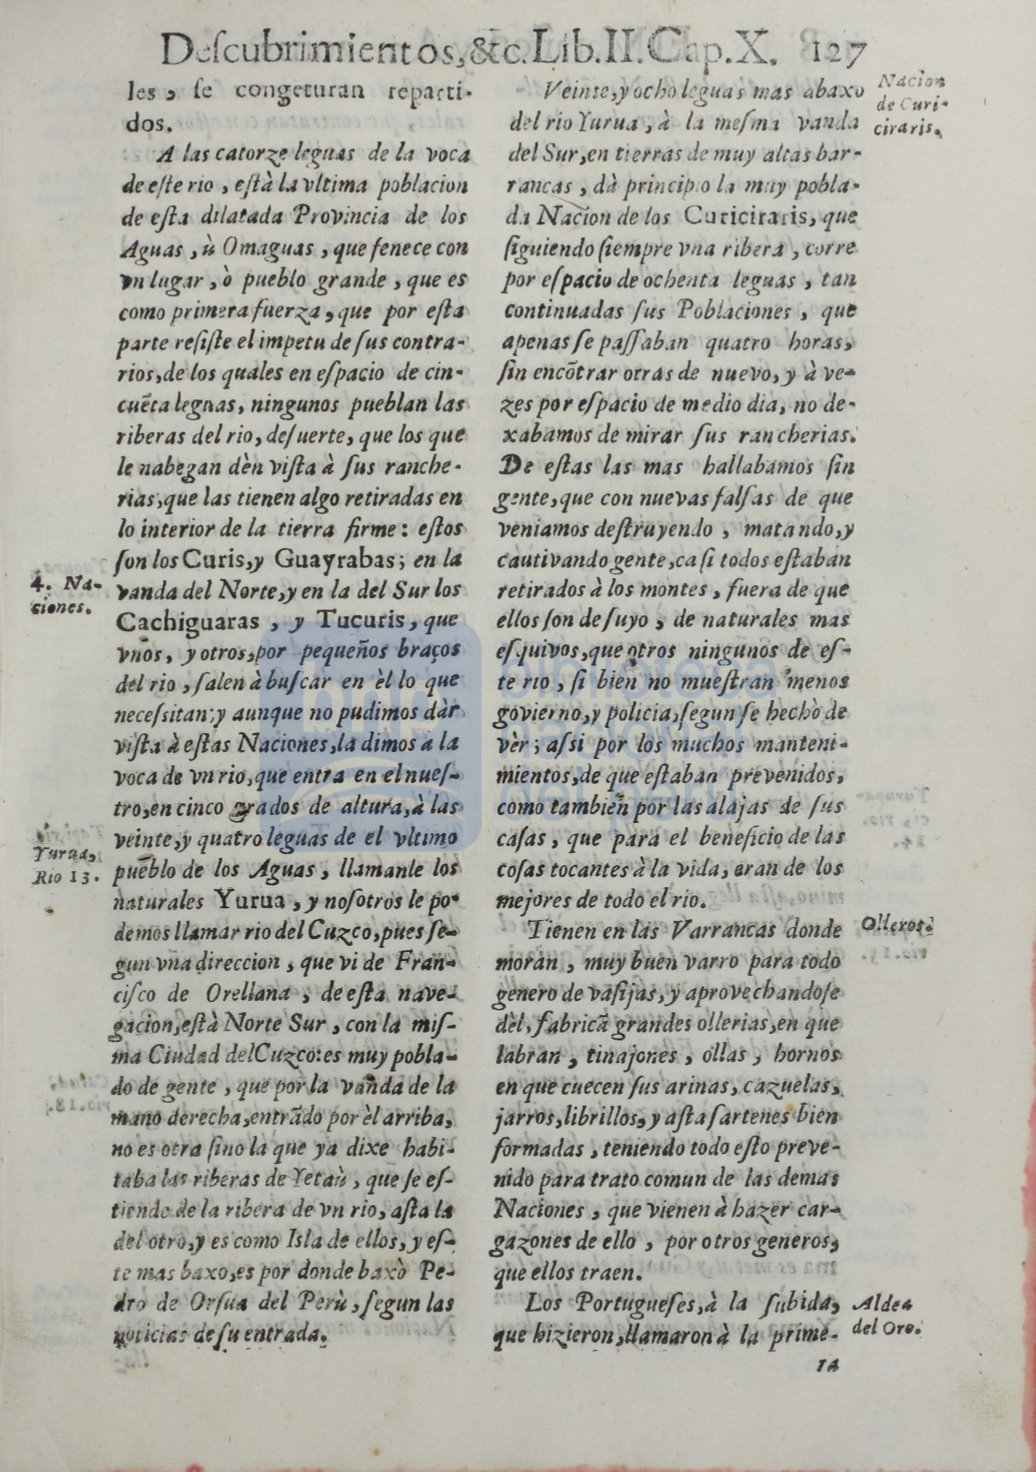 Descubrimientos, &c. Lib. II. Cap. X. 127
les, se congeturan reparti-
dos.
A las catorze leguas de la voca
de este rio, està la vltima poblacion
de esta dilatada Provincia de los
Aguas, ù Omaguas, que fenece con
vn lugar, ò pueblo grande, que es
como primera fuerza, que por esta
parte resiste el impetu de sus contra-
rios, de los quales en espacio de cin-
cuẽta leguas, ningunos pueblan las
riberas del rio, desuerte, que los que
le nabegan dèn vista à sus ranche-
rias, que las tienen algo retiradas en
lo interior de la tierra firme: estos
son los Curis, y Guayrabas; en la
4. Na-
ciones.
vanda del Norte, y en la del Sur los
Cachiguaras, y Tucuris, que
vnos, y otros, por pequeños braços
del rio, salen à buscar en èl lo que
necessitan: y aunque no pudimos dàr
vista à estas Naciones, la dimos a la
voca de vn rio, que entra en el nues-
tro, en cinco grados de altura, à las
veinte, y quatro leguas de el vltimo
Yurua,
Rio 13.
pueblo de los Aguas, llamanle los
naturales Yurua, y nosotros le po-
demos llamar rio del Cuzco, pues se-
gun vna direccion, que vi de Fran-
cisco de Orellana, de esta nave-
gacion, està Norte Sur, con la mis-
ma Ciudad del Cuzco: es muy pobla-
do de gente, que por la vanda de la
mano derecha, entrãdo por èl arriba,
no es otra sino la que ya dixe habi-
taba las riberas de Yetaù, que se es-
tiende de la ribera de vn rio, asta la
del otro, y es como Isla de ellos, y es-
te mas baxo, es por donde baxò Pe-
dro de Orsua del Perù, segun las
noticias de su entrada.
Veinte, y ocho leguas mas abaxo
Nacion
de Curi-
ciraris.
del rio Yurua, à la mesma vanda
del Sur, en tierras de muy altas bar-
rancas, dà principio la muy pobla-
da Nacion de los Curiciraris, que
siguiendo siempre vna ribera, corre
por espacio de ochenta leguas, tan
continuadas sus Poblaciones, que
apenas se passaban quatro horas,
sin encõtrar otras de nuevo, y à ve-
zes por espacio de medio dia, no de-
xabamos de mirar sus rancherias.
De estas las mas hallabamos sin
gente, que con nuevas falsas de que
veniamos destruyendo, matando, y
cautivando gente, casi todos estaban
retirados à los montes, fuera de que
ellos son de suyo, de naturales mas
esquivos, que otros ningunos de es-
te rio, si bien no muestran menos
govierno, y policia, segun se hechò de
vèr; assi por los muchos manteni-
mientos, de que estaban prevenidos,
como tambien por las alajas de sus
casas, que para el beneficio de las
cosas tocantes à la vida, eran de los
mejores de todo el rio.
Tienen en las Varrancas donde
Olleros.
moran, muy buen varro para todo
genero de vasijas, y aprovechandose
dèl, fabricã grandes ollerias, en que
labran, tinajones, ollas, hornos
en que cuecen sus arinas, cazuelas,
jarros, librillos, y asta sartenes bien
formadas, teniendo todo esto preve-
nido para trato comun de las demas
Naciones, que vienen à hazer car-
gazones de ello, por otros generos,
que ellos traen.
Los Portugueses, à la subida,
Aldea
del Oro.
que hizieron, llamaron à la prime-
ra
biblioteca
nacional
del perú